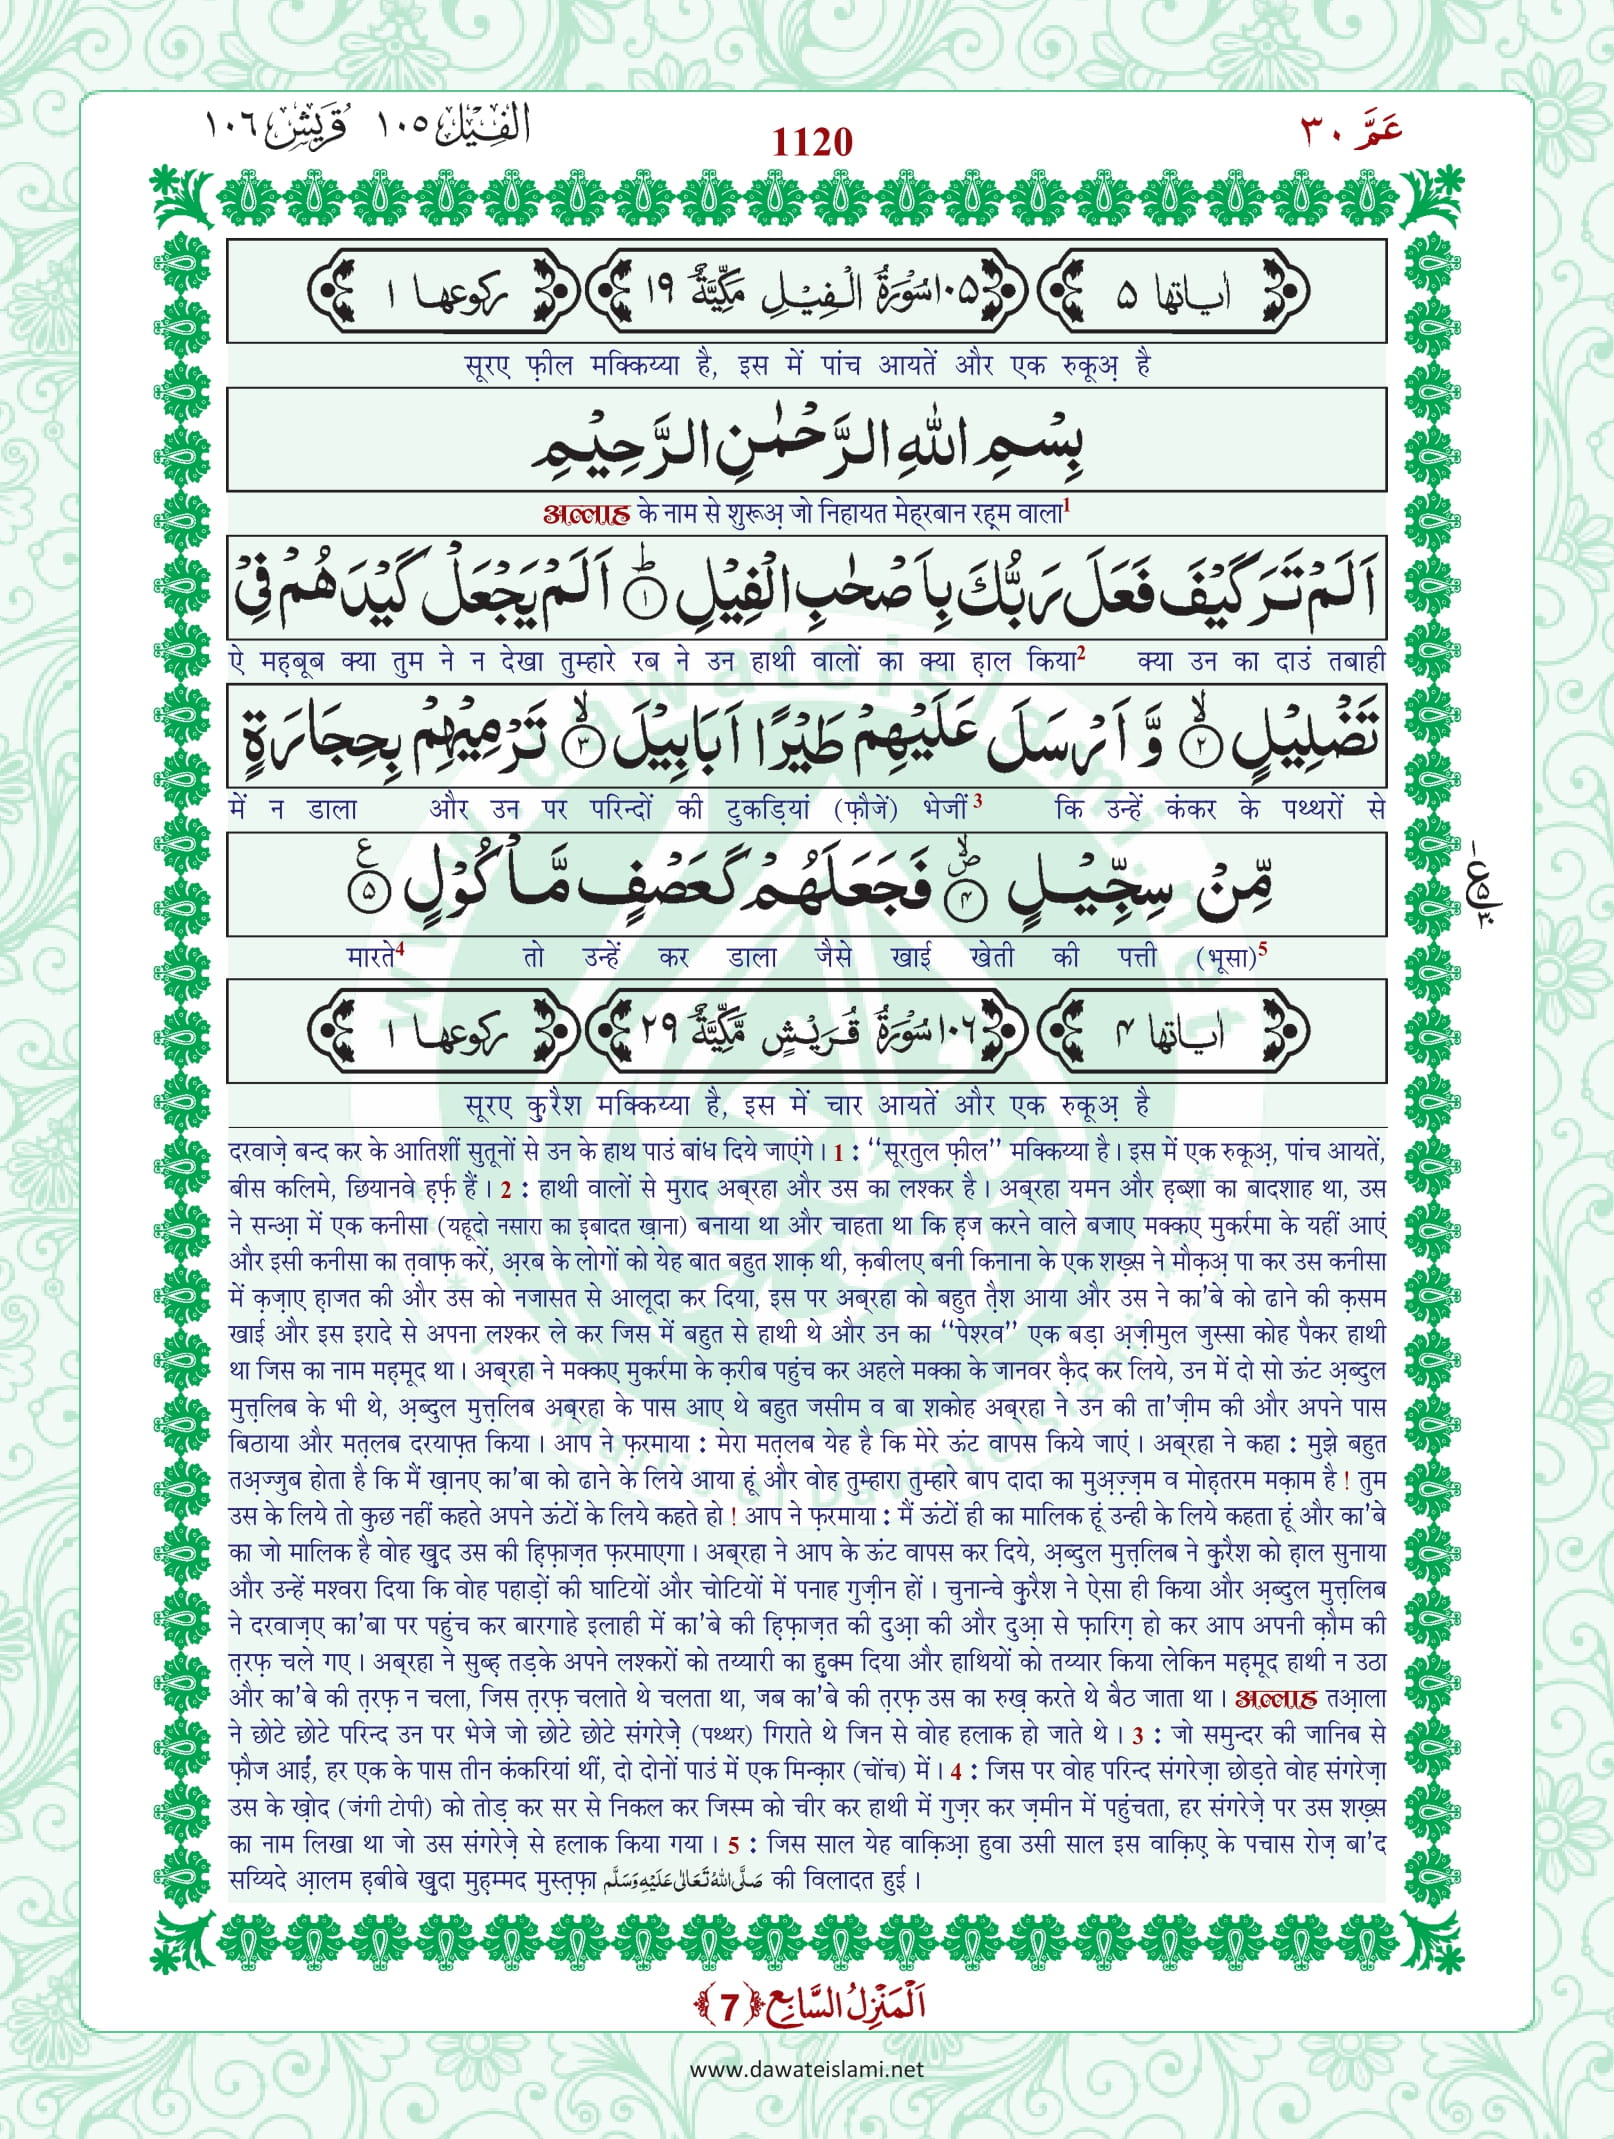 الفيل ١٠٥ قريش ١٠٦
1120
عَمَّ ٣٠
اٰياتها ٥
١٠٥ سُوْرَةُ الْفِيْلِ مَكِّيَّةٌ ١٩
ركوعها ١
सूरए फ़ील मक्किय्या है, इस में पांच आयतें और एक रुकूअ़ है
بِسْمِ اللّٰهِ الرَّحْمٰنِ الرَّحِيْمِ
अल्लाह के नाम से शुरूअ़ जो निहायत मेह्‍रबान रह़्म वाला1
اَلَمْ تَرَ كَيْفَ فَعَلَ رَبُّكَ بِاَصْحٰبِ الْفِيْلِ ؕ﴿١﴾ اَلَمْ يَجْعَلْ كَيْدَهُمْ فِيْ
ऐ मह़बूब क्या तुम ने न देखा तुम्हारे रब ने उन हाथी वालों का क्या ह़ाल किया2 क्या उन का दाउं तबाही
تَضْلِيْلٍ ۙ﴿٢﴾ وَّ اَرْسَلَ عَلَيْهِمْ طَيْرًا اَبَابِيْلَ ۙ﴿٣﴾ تَرْمِيْهِمْ بِحِجَارَةٍ
में न डाला और उन पर परिन्दों की टुकड़ियां (फ़ौजें) भेजीं3 कि उन्हें कंकर के पथ्थरों से
مِّنْ سِجِّيْلٍ ۪ۙ﴿٤﴾ فَجَعَلَهُمْ كَعَصْفٍ مَّاْكُوْلٍ ﴿٥﴾ع
मारते4 तो उन्हें कर डाला जैसे खाई खेती की पत्ती (भूसा)5
اٰياتها ٤
١٠٦ سُوْرَةُ قُرَيْشٍ مَّكِّيَّةٌ ٢٩
ركوعها ١
सूरए क़ुरैश मक्किय्या है, इस में चार आयतें और एक रुकूअ़ है
दरवाज़े बन्द कर के आतिशीं सुतूनों से उन के हाथ पाउं बांध दिये जाएंगे। 1 : ‘‘सूरतुल फ़ील’’ मक्किय्या है। इस में एक रुकूअ़, पांच आयतें,
बीस कलिमे, छियानवे ह़र्फ़ हैं। 2 : हाथी वालों से मुराद अब्‍रहा और उस का लश्कर है। अब्‍रहा यमन और ह़ब्शा का बादशाह था, उस
ने सन्आ़ में एक कनीसा (यहूदो नसारा का इबादत ख़ाना) बनाया था और चाहता था कि ह़ज करने वाले बजाए मक्कए मुकर्रमा के यहीं आएं
और इसी कनीसा का त़वाफ़ करें, अ़रब के लोगों को येह बात बहुत शाक़ थी, क़बीलए बनी किनाना के एक शख़्स ने मौक़अ़ पा कर उस कनीसा
में क़ज़ाए ह़ाजत की और उस को नजासत से आलूदा कर दिया, इस पर अब्‍रहा को बहुत त़ैश आया और उस ने का’बे को ढाने की क़सम
खाई और इस इरादे से अपना लश्कर ले कर जिस में बहुत से हाथी थे और उन का ‘‘पेशरव’’ एक बड़ा अ़ज़ीमुल जुस्सा कोह पैकर हाथी
था जिस का नाम मह़मूद था। अब्‍रहा ने मक्कए मुकर्रमा के क़रीब पहुंच कर अहले मक्का के जानवर क़ैद कर लिये, उन में दो सो ऊंट अ़ब्दुल
मुत्त़लिब के भी थे, अ़ब्दुल मुत्त़लिब अब्‍रहा के पास आए थे बहुत जसीम व बा शकोह अब्‍रहा ने उन की ता’ज़ीम की और अपने पास
बिठाया और मत़लब दरयाफ़्त किया। आप ने फ़रमाया : मेरा मत़लब येह है कि मेरे ऊंट वापस किये जाएं। अब्‍रहा ने कहा : मुझे बहुत
तअ़ज्जुब होता है कि मैं ख़ानए का’बा को ढाने के लिये आया हूं और वोह तुम्हारा तुम्हारे बाप दादा का मुअ़ज़्ज़म व मोह़तरम मक़ाम है! तुम
उस के लिये तो कुछ नहीं कहते अपने ऊंटों के लिये कहते हो! आप ने फ़रमाया : मैं ऊंटों ही का मालिक हूं उन्ही के लिये कहता हूं और का’बे
का जो मालिक है वोह ख़ुद उस की ह़िफ़ाज़त फ़रमाएगा। अब्‍रहा ने आप के ऊंट वापस कर दिये, अ़ब्दुल मुत्त़लिब ने क़ुरैश को ह़ाल सुनाया
और उन्हें मश्वरा दिया कि वोह पहाड़ों की घाटियों और चोटियों में पनाह गुज़ीन हों। चुनान्चे क़ुरैश ने ऐसा ही किया और अ़ब्दुल मुत्त़लिब
ने दरवाज़ए का’बा पर पहुंच कर बारगाहे इलाही में का’बे की ह़िफ़ाज़त की दुआ़ की और दुआ़ से फ़ारिग़ हो कर आप अपनी क़ौम की
त़रफ़ चले गए। अब्‍रहा ने सुब्ह़ तड़के अपने लश्करों को तय्यारी का हुक्म दिया और हाथियों को तय्यार किया लेकिन मह़मूद हाथी न उठा
और का’बे की त़रफ़ न चला, जिस त़रफ़ चलाते थे चलता था, जब का’बे की त़रफ़ उस का रुख़ करते थे बैठ जाता था। अल्लाह तआ़ला
ने छोटे छोटे परिन्द उन पर भेजे जो छोटे छोटे संगरेज़े (पथ्थर) गिराते थे जिन से वोह हलाक हो जाते थे। 3 : जो समुन्दर की जानिब से
फ़ौज आई, हर एक के पास तीन कंकरियां थीं, दो दोनों पाउं में एक मिन्क़ार (चोंच) में। 4 : जिस पर वोह परिन्द संगरेज़ा छोड़ते वोह संगरेज़ा
उस के ख़ोद (जंगी टोपी) को तोड़ कर सर से निकल कर जिस्म को चीर कर हाथी में गुज़र कर ज़मीन में पहुंचता, हर संगरेज़े पर उस शख़्स
का नाम लिखा था जो उस संगरेज़े से हलाक किया गया। 5 : जिस साल येह वाक़िआ़ हुवा उसी साल इस वाक़िए के पचास रोज़ बा’द
सय्यिदे आ़लम ह़बीबे ख़ुदा मुह़म्मद मुस्त़फ़ा صَلَّى اللهُ تَعَالٰى عَلَيْهِ وَسَلَّم की विलादत हुई।
اَلْمَنْزِلُ السَّابِع ﴿7﴾
www.dawateislami.net